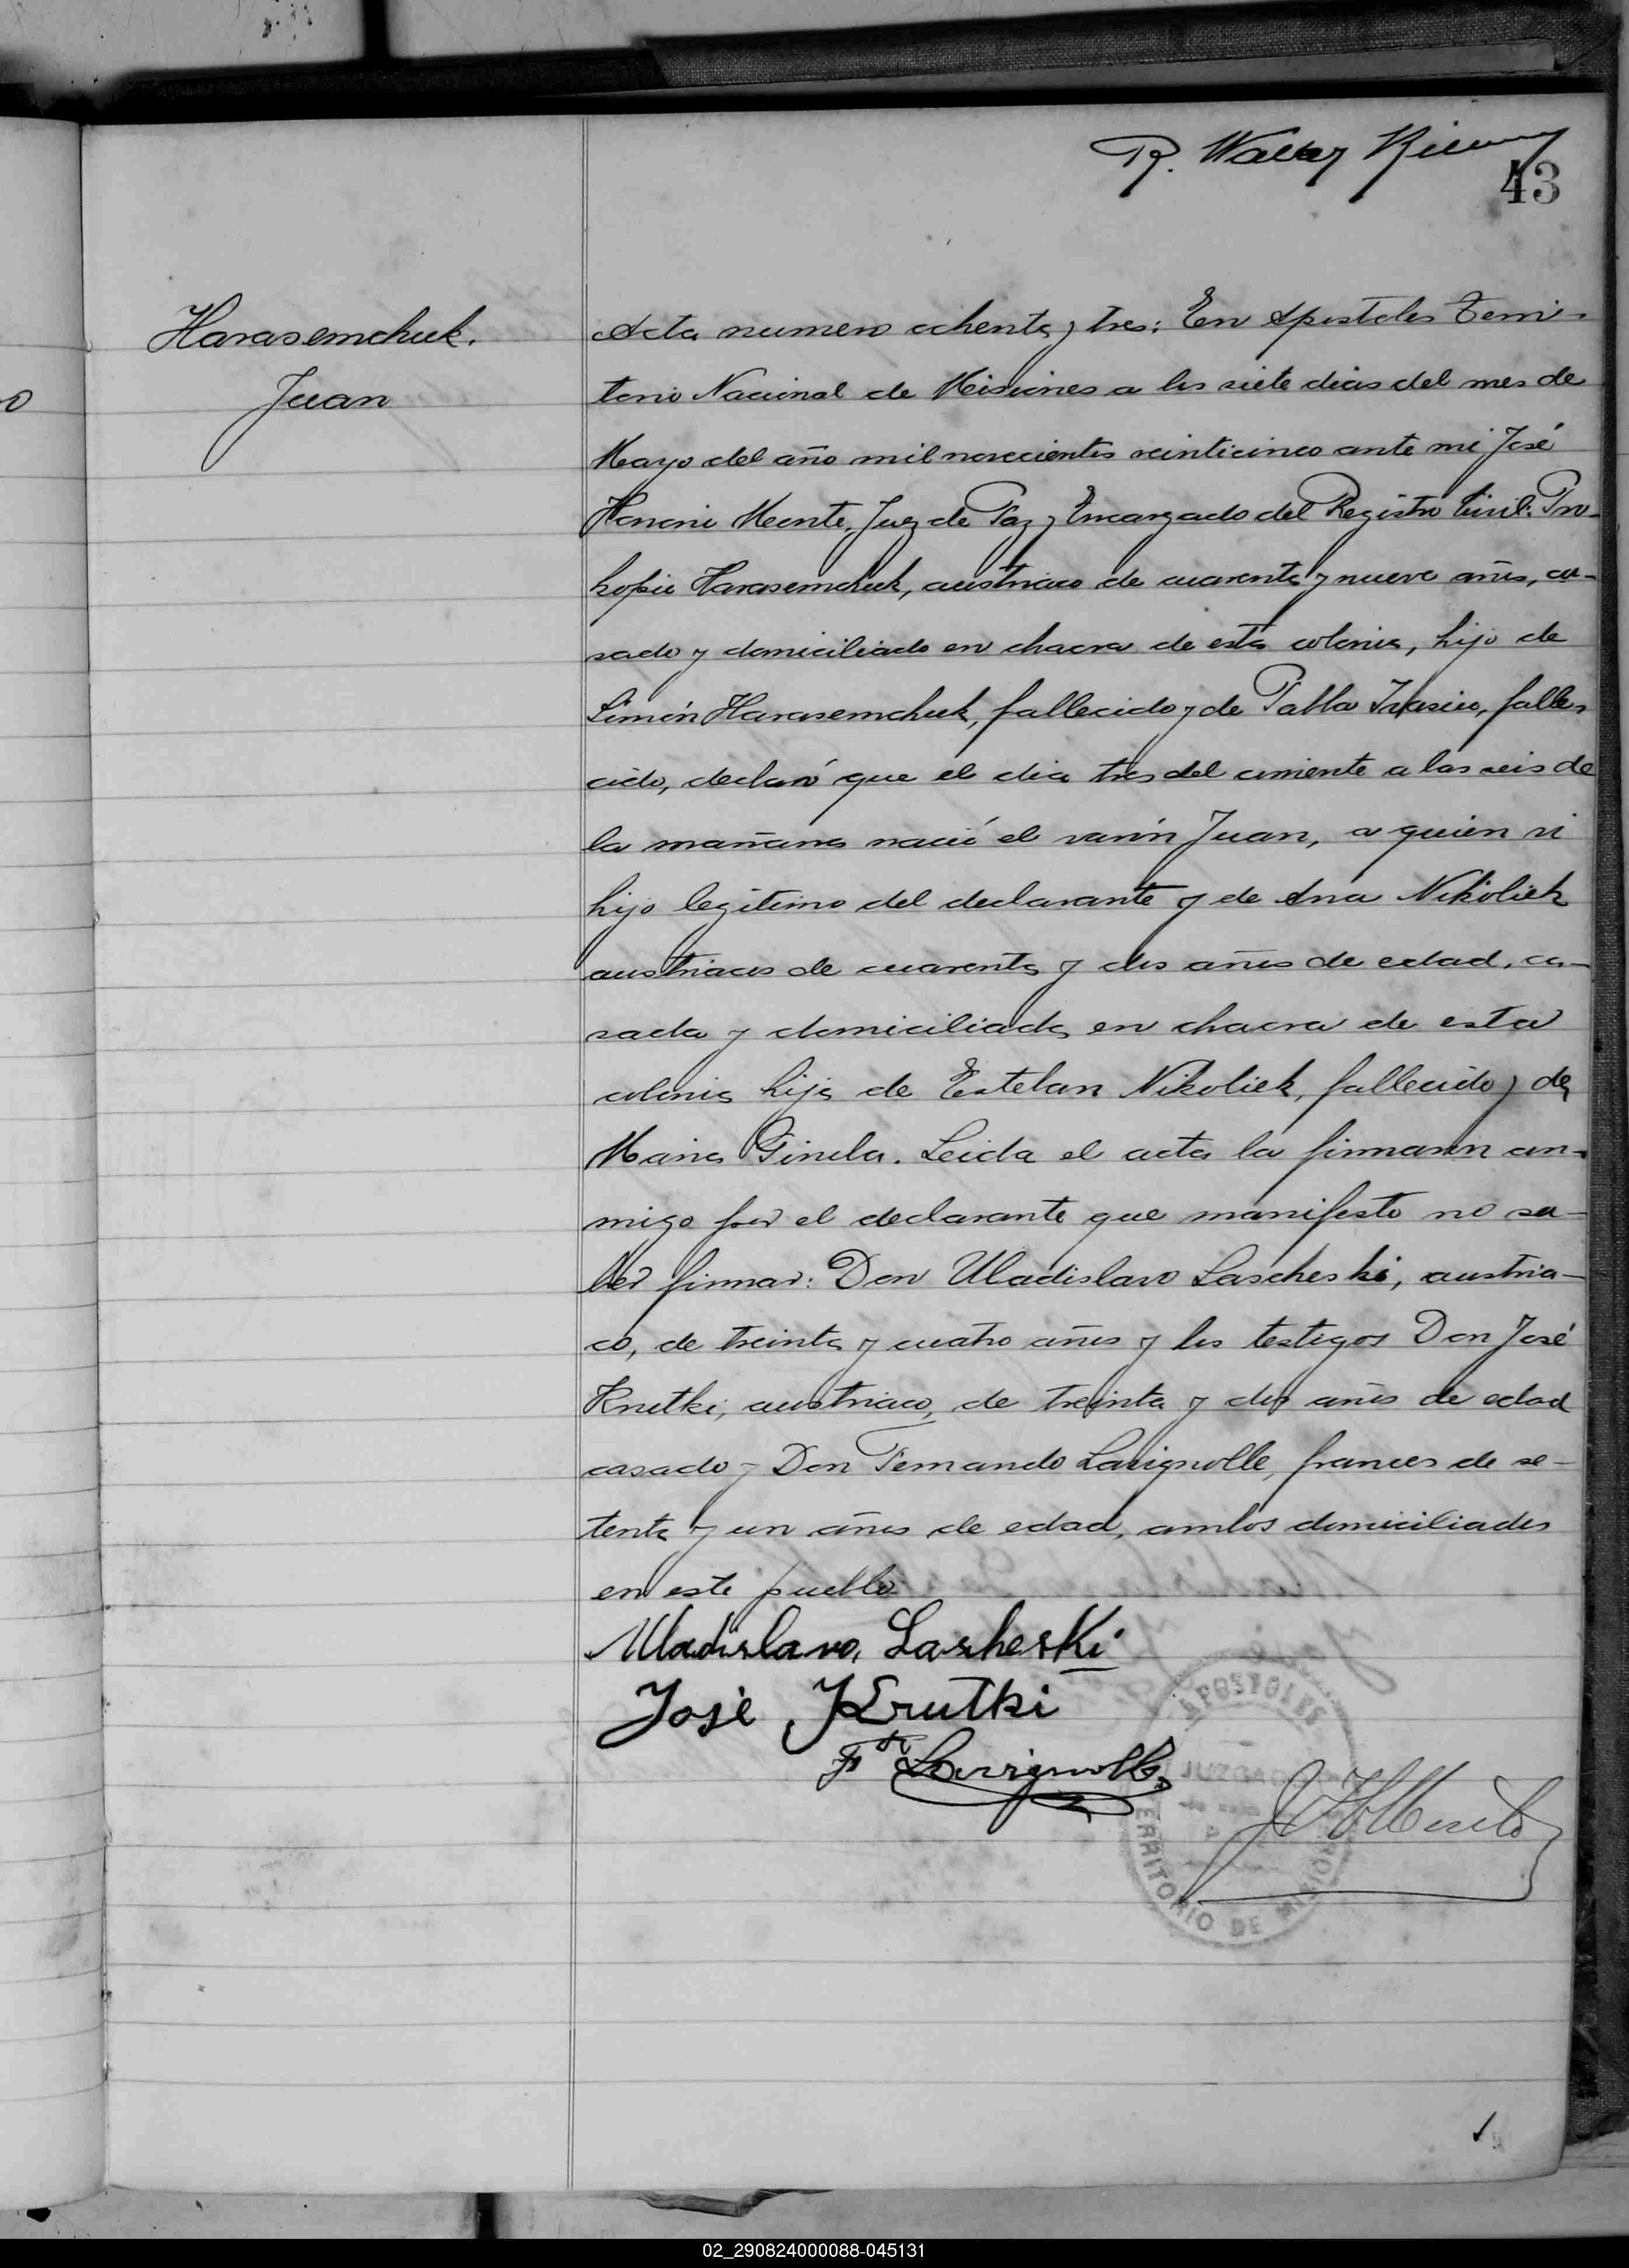 43
Harasemchuk.
Juan
Acta numero ochenta y tres: En Apostoles Terri-
torio Nacional de Misiones a los siete dias del mes de
Mayo del año mil novecientos veinticinco ante mi José
Honorio Mente, Juez de Paz y Encargado del Registro Civil: Pro-
kopio Harasemchuk, austriaco de cuarenta y nueve años, ca-
sado y domiciliado en chacra de esta colonia, hijo de
Simón Harasemchuk, fallecido y de Pabla, falle-
cido, declaró que el dia tres del corriente a las seis de
la mañana nació el varón Juan, a quien vi
hijo legitimo del declarante y de Ana Nikoliek
austriaca de cuarenta y dos años de edad, ca-
sada y domiciliada en chacra de esta
colonia hija de Esteban Nikoliek, fallecido y de
Maria Ginela. Leida el acta la firmaron con-
migo por el declarante que manifesto no sa-
ber firmar: Don Uladislavo Lascheski, austria-
co, de treinta y cuatro años y los testigos Don José
Krutki, austriaco, de treinta y dos años de edad
casado y Don Fernando Lavignolle, frances de se-
tenta y un años de edad, ambos domiciliados
en este pueblo
Uladislavo Lasheski
José Krutki
F^do Lavignolle
APOSTOLES
JUZGADO
TERRITORIO DE MISIONES
02_290824000088-045131